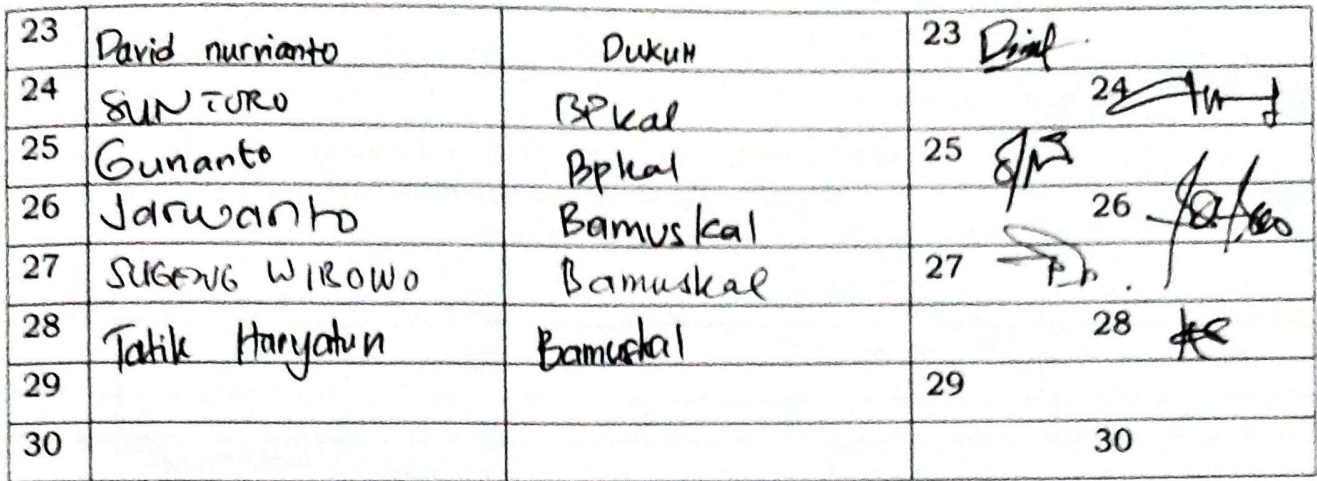 23 David nurrianto Dukuh 23
24 SUNTORO BPkal 24
25 Gunanto Bpkal 25
26 Jarwanto Bamuskal 26
27 SUGENG WIBOWO Bamuskal 27
28 Tatik Haryatun Bamuskal 28
29 29
30 30